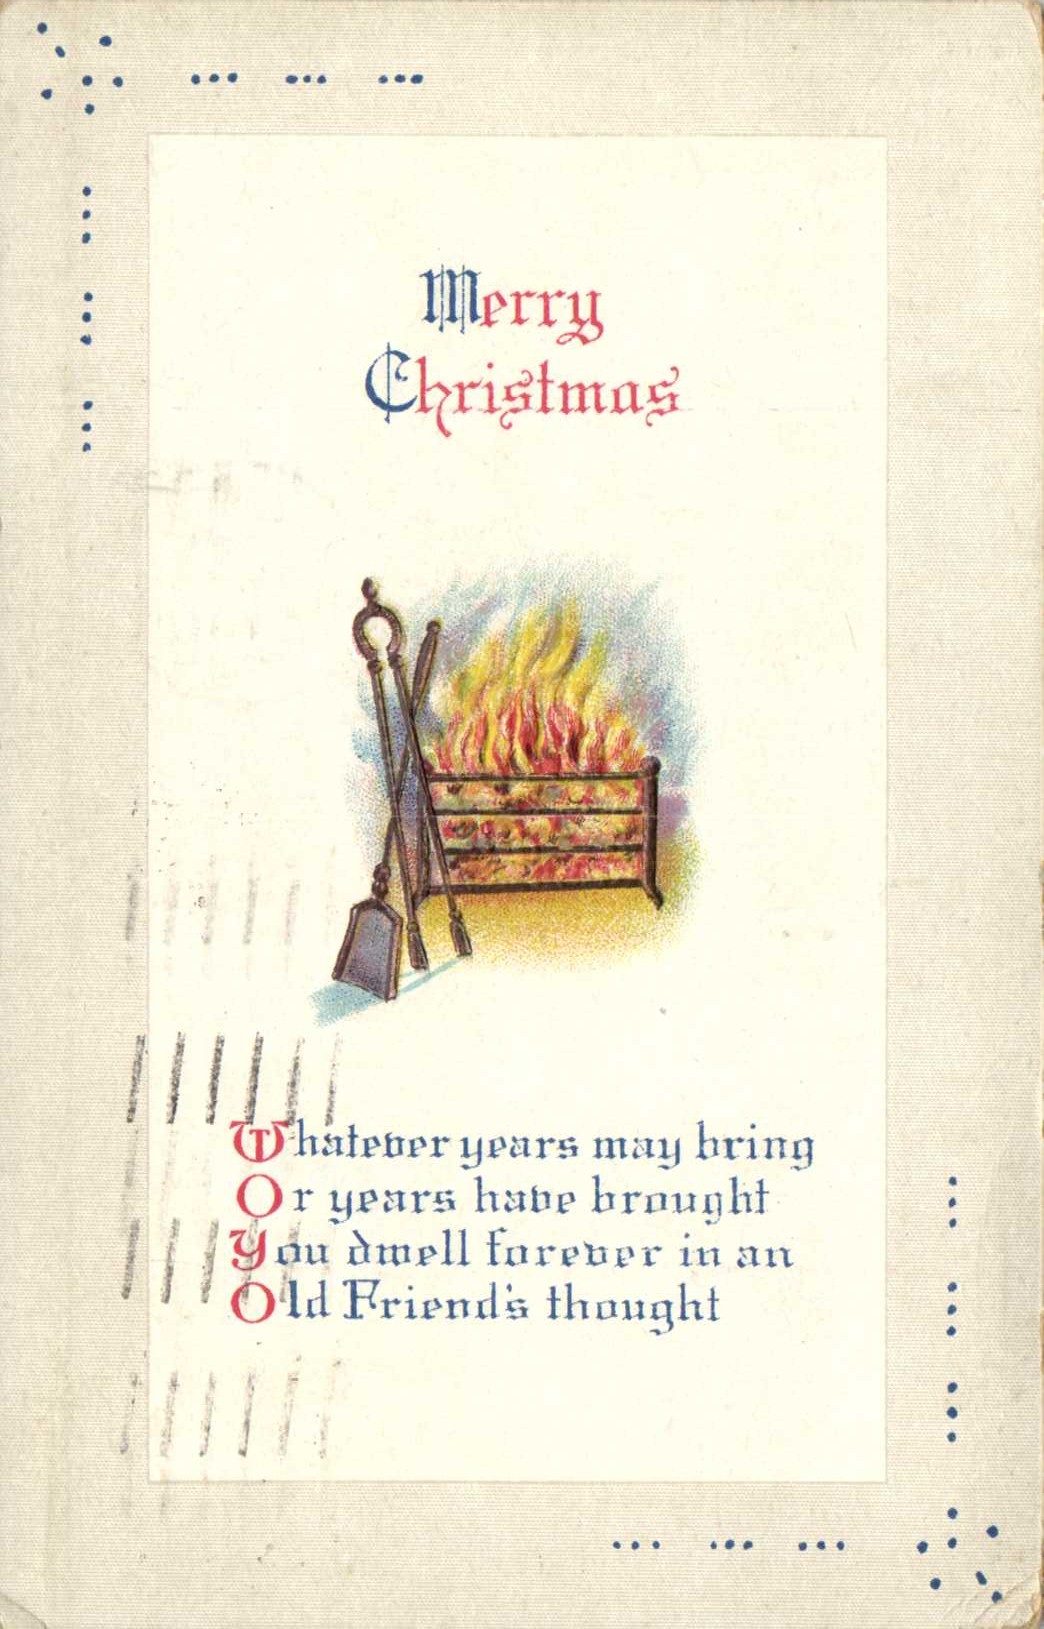 Merry
Christmas
Whatever years may bring
Or years have brought
You dwell forever in an
Old Friend's thought